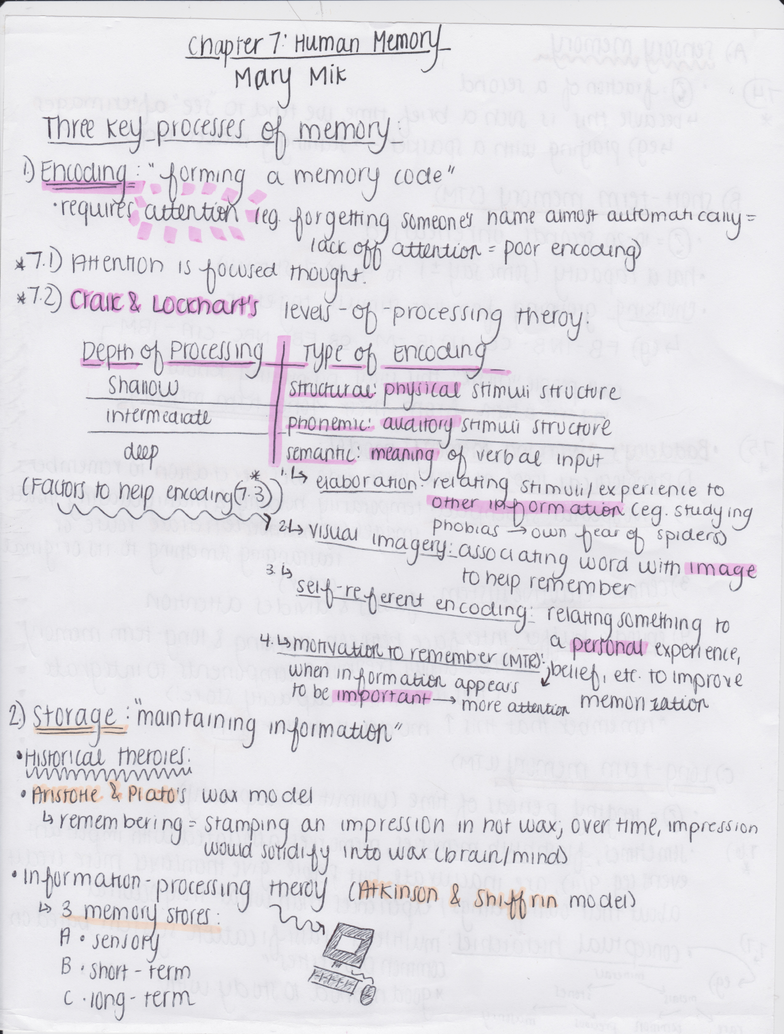 Chapter 7: Human Memory
Mary Mik
Three key processes of memory:
1) Encoding: "forming a memory code"
• requires attention (eg. forgetting someone's name almost automatically =
lack off attention = poor encoding)
*7.1) Attention is focused thought.
*7.2) Craik & Lockhart's levels-of-processing theroy:
Depth of Processing Type of Encoding
Shallow structural: physical stimuli structure
intermediate phonemic: auditory stimuli structure
deep semantic: meaning of verbal input
(Factors to help encoding(7.3)* 1.↳ elaboration: relating stimuli/experience to
other information (eg. studying
phobias → own fear of spiders)
2.↳ visual imagery: associating word with image
to help remember
3.↳ self-referent encoding: relating something to
a personal experience,
belief, etc. to improve
memorization
4.↳ motivation to remember (MTR):
when information appears
to be important → more attention
2) Storage: "maintaining information"
• Historical theroies:
• Aristotle & Plato's wax model
↳ remembering = stamping an impression in hot wax; over time, impression
would solidify into wax (brain/mind)
• Information-processing theroy (Atkinson & Shiffrin model)
↳ 3 memory stores:
A • sensory
B • short-term
C • long-term